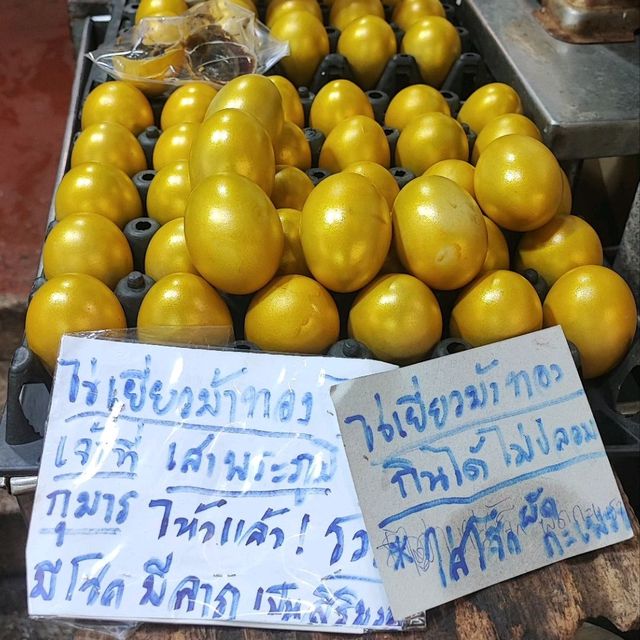 ไข่เยี่ยวม้าทอง
เจ้าที่ เสาพระภูมิ
กุมาร ไหว้แล้ว! รวย
มีโชค มีลาภ เป็นสิริมงคล
ไข่เยี่ยวม้าทอง
กินได้ ไม่ปลอม
ผัดกะเพรา